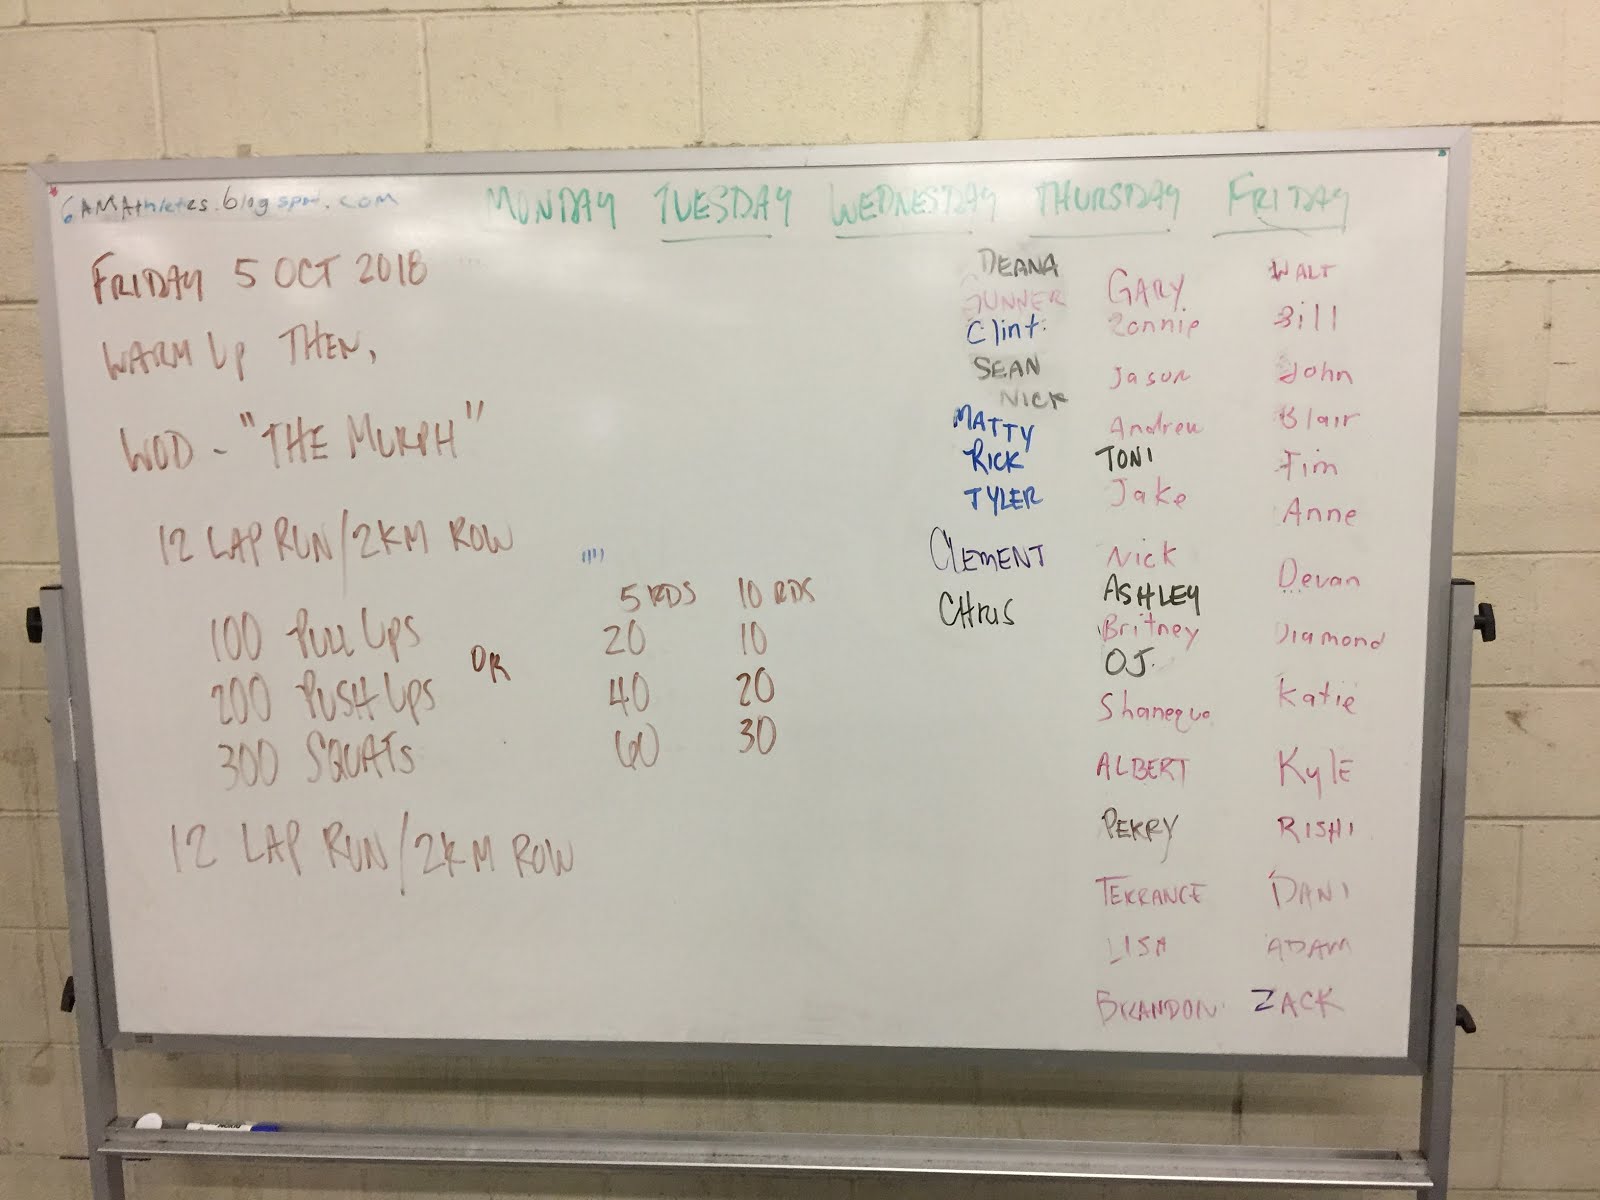 6AMAthletes.blogspot.com
MONDAY TUESDAY WEDNESDAY THURSDAY FRIDAY
FRIDAY 5 OCT 2018
WARM UP THEN,
WOD - "THE MURPH"
12 LAP RUN/2KM ROW
5 RDS 10 RDS
100 PULL UPS 20 10
OR
200 PUSH UPS 40 20
300 SQUATS 60 30
12 LAP RUN/2KM ROW
DEANA
GUNNER
Clint
SEAN
NICK
MATTY
RICK
TYLER
CLEMENT
CHRIS
GARY
Jason
Andrew
TONI
Jake
Nick
ASHLEY
Britney
OJ.
Shanequa
ALBERT
PERRY
TERRANCE
LISA
BRANDON
WALT
Bill
John
Blair
Tim
Anne
Devan
Diamond
Katie
KylE
RISHI
DANI
ADAM
ZACK